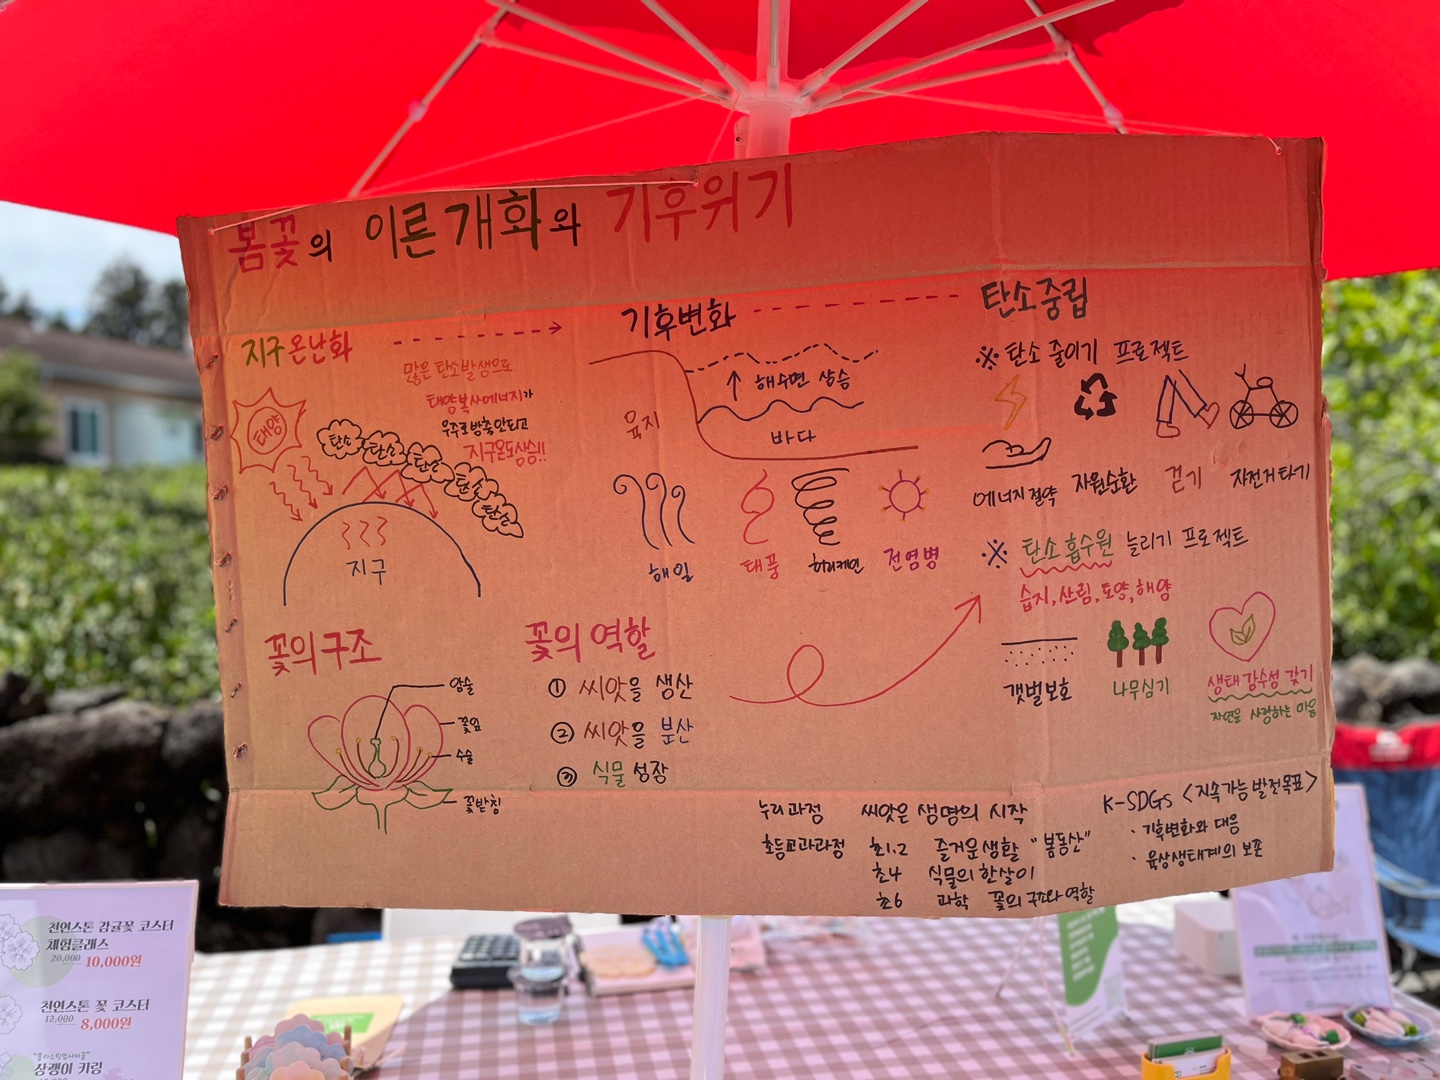 봄꽃의 이른 개화와 기후위기
지구온난화
많은 탄소발생으로
태양복사에너지가
우주로 방출 안되고
지구온도상승!!
태양
탄소
탄소
탄소
탄소
탄소
지구
기후변화
해수면 상승
육지
바다
해일
태풍
허리케인
전염병
탄소중립
※ 탄소 줄이기 프로젝트
에너지절약
자원순환
걷기
자전거타기
※ 탄소흡수원 늘리기 프로젝트
습지, 산림, 토양, 해양
갯벌보호
나무심기
생태감수성 갖기
자연을 사랑하는 마음
꽃의구조
암술
꽃잎
수술
꽃받침
꽃의 역할
① 씨앗을 생산
② 씨앗을 분산
③ 식물 성장
누리과정 씨앗은 생명의 시작
초등교과과정 초1.2 즐거운생활 "봄동산"
초4 식물의 한살이
초6 과학 꽃의 구조와 역할
K-SDGs <지속가능발전목표>
· 기후변화와 대응
· 육상생태계의 보존
천연스톤 감귤꽃 코스터
체험클래스
20,000 10,000원
천연스톤 꽃 코스터
12,000 8,000원
"플라스틱업사이클"
상괭이 키링